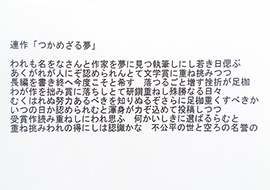 連作「つかめざる夢」
われも名をなさんと作家を夢に見つ執筆しにし若き日偲ぶ
あくがれが人にぞ認められんとて文学賞に重ね挑みつつ
長編を書き終へ今度こそと希す　落つるごと増す挫折が足枷
わが作を拙み賞に落ちしとて研鑽重ねし殊勝なる日々
むくはれぬ努力あるべきを知りぬるぞさらに足枷重くすべきか
いつの日か認められむと渾身が力そ込めて投稿しつつ
受賞作読み重ねしにわれ思ふ　何かいしきに選ばるらむと
重ね挑みわれの得にしは認識かな　不公平の世と空ろの名誉の